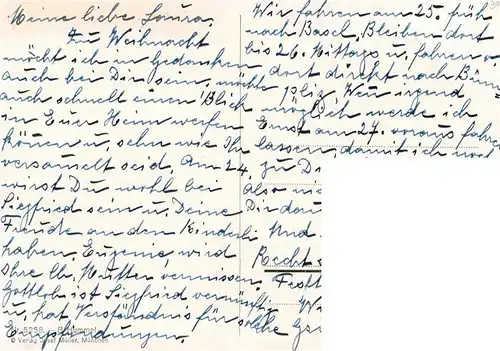 Meine liebe Laura.
Zu Weihnacht
möcht ich in Gedanken
auch bei Dir sein, möchte
auch schnell einen Blick
in Euer Heim werfen
können u. sehn wie Ihr
versammelt seid. Am 24.
wirst Du wohl bei
Siegfried sein u. Deine
Freude an den Kinderli
haben. Eugenie wird
ihre lb. Mutter vermissen.
Gottlob ist Siegfried vernünftig
u. hat Verständnis für solche
Empfindungen.
5258
© Verlag Josef Müller, München
Wir fahren am 25. früh
nach Basel, bleiben dort
bis 26. Mittags u. fahren v.
dort direkt nach Bün-
pliz. Wenn irgend
möglich werde ich
Ernst am 27. voraus fahren
lassen, damit ich noch
zu Di
Also nic
Dir dau
Und
Recht
Festt